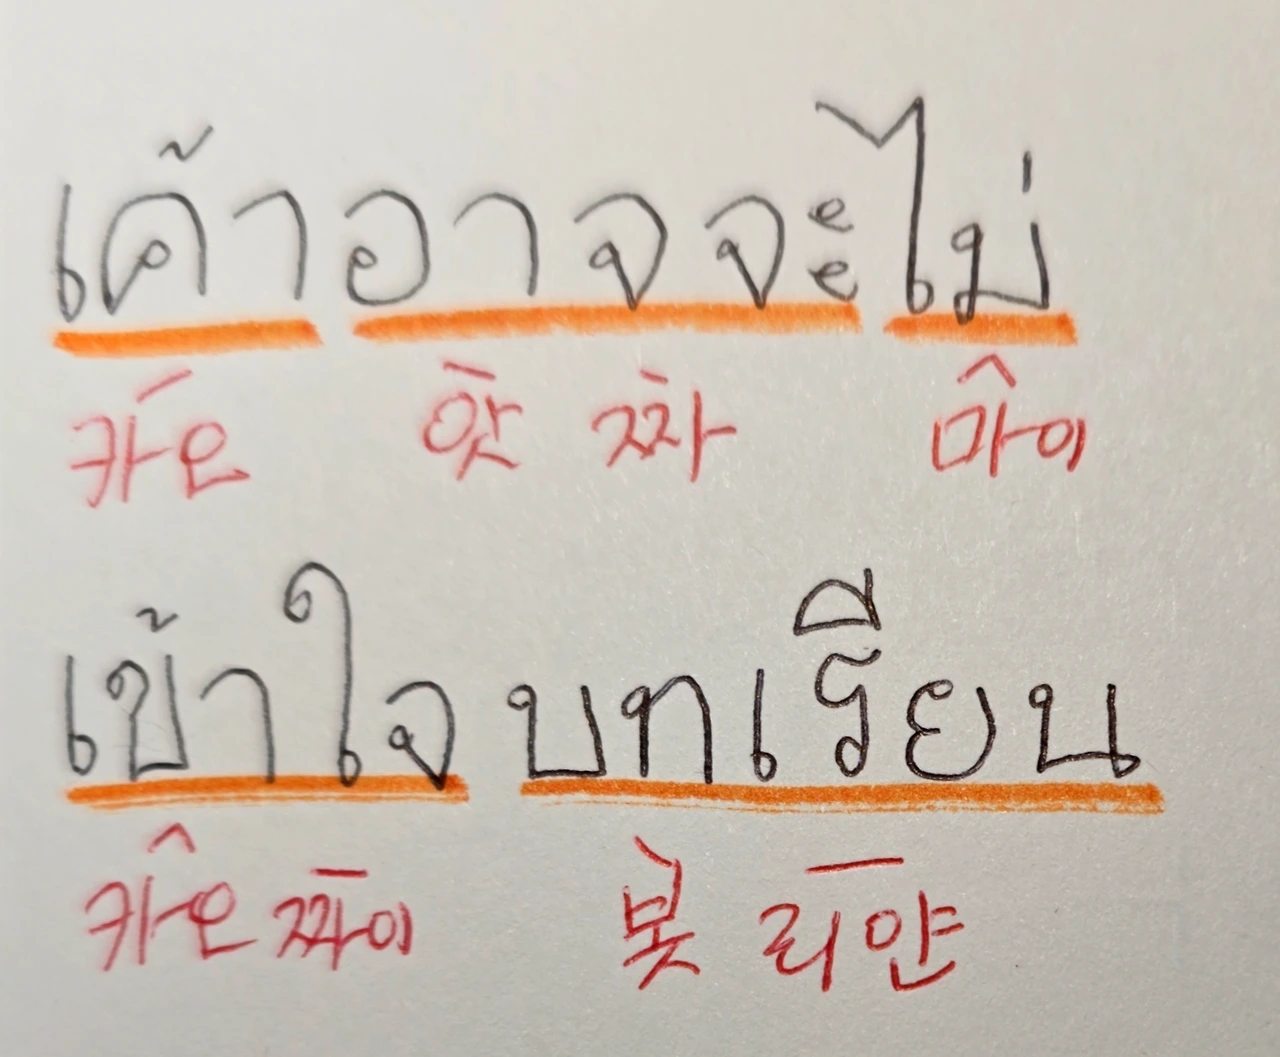 เค้าอาจจะไม่
카오 앗 짜 마이
เข้าใจ บทเรียน
카오 짜이 봇 리얀